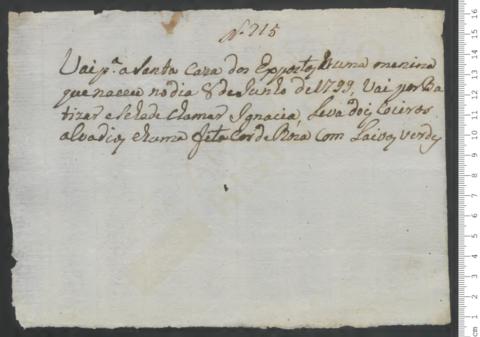 Nº 715
Vai pª a Santa Caza dos Expostos huma menina
que naceu no dia 8 de Junho de 1799, Vai por Ba
tizar e se hade chamar Ignacia, Leva dois Coeiros
alvadios e huma fita cor de Roza com Laivos verdes
cm 1 2 3 4 5 6 7 8 9 10 11 12 13 14 15 16